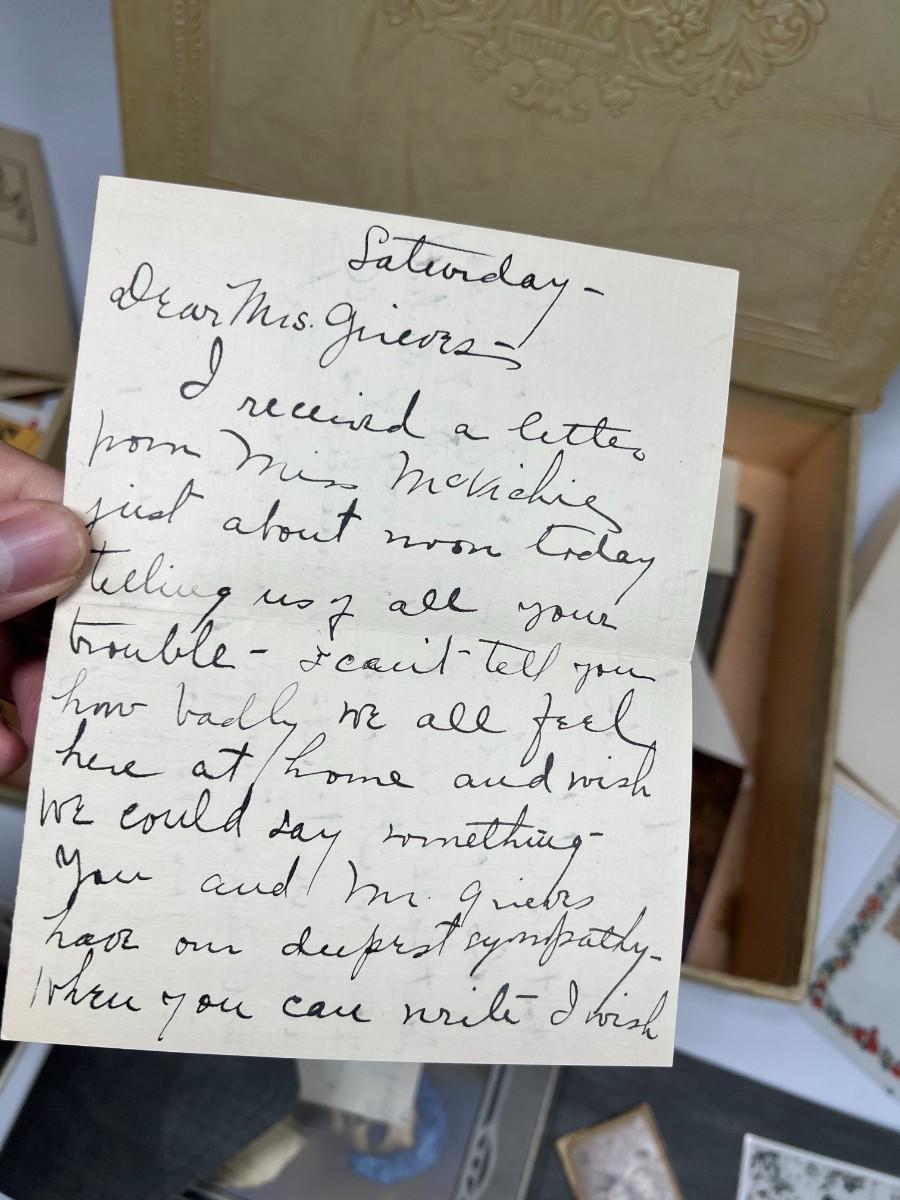 Saturday -
Dear Mrs. Grieves -
I received a letter
from Miss McVichie
just about noon today
telling us of all your
trouble - I can't tell you
how badly we all feel
here at home and wish
we could say something -
You and Mr. Grieves
have our deepest sympathy -
When you can write I wish